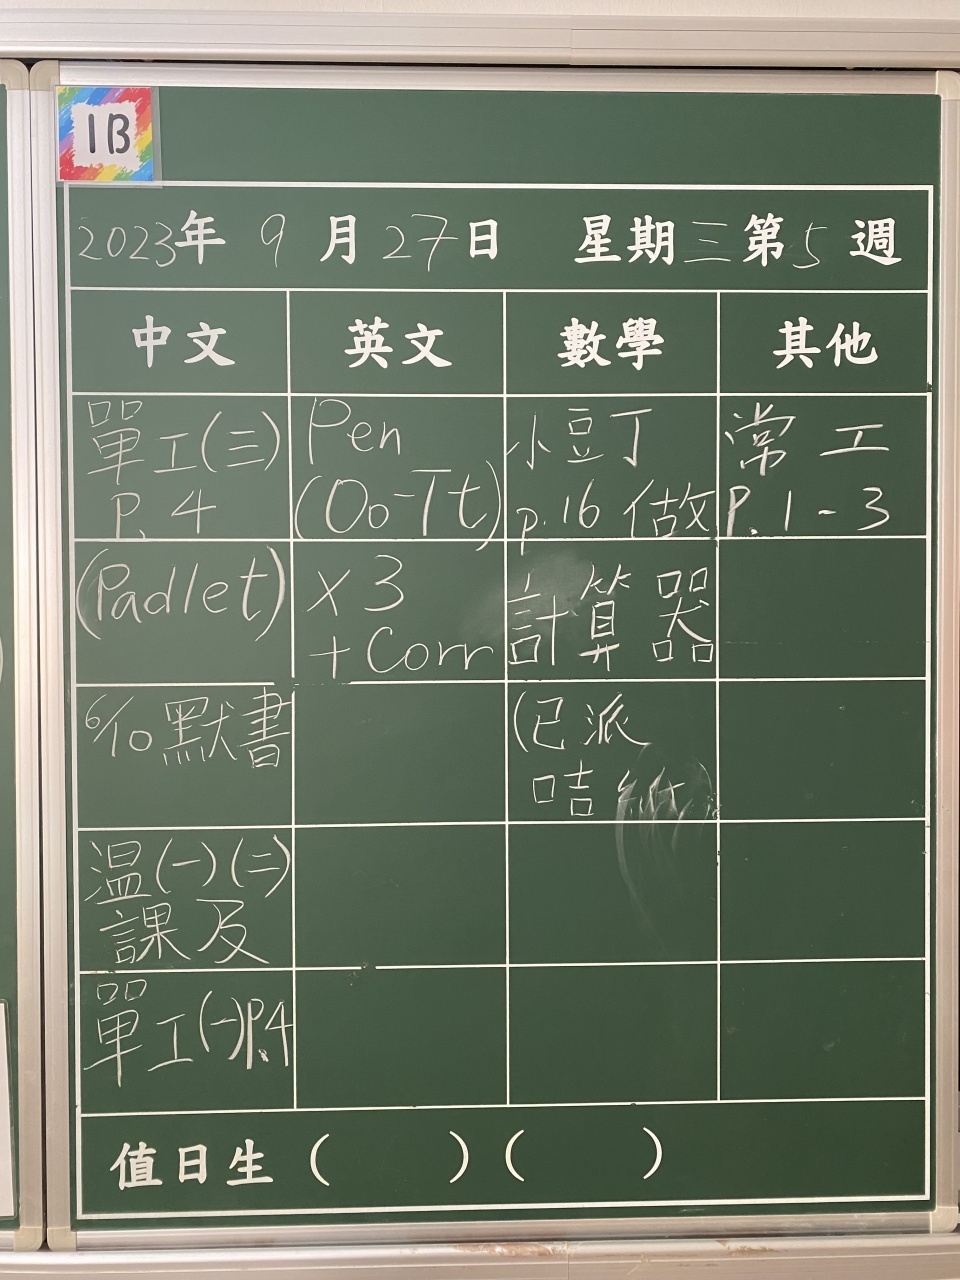 1B
2023年 9 月 27 日 星期三 第 5 週
中文 英文 數學 其他
單工(三)
P.4
(Padlet)
6/10 默書
温(一)(二)
課及
單工(一)P.4
Pen
(Oo-Tt)
x3
+ Corr
小豆丁
p.16 做
計算器
(已派
咭紙)
常工
P.1-3
值日生 ( ) ( )